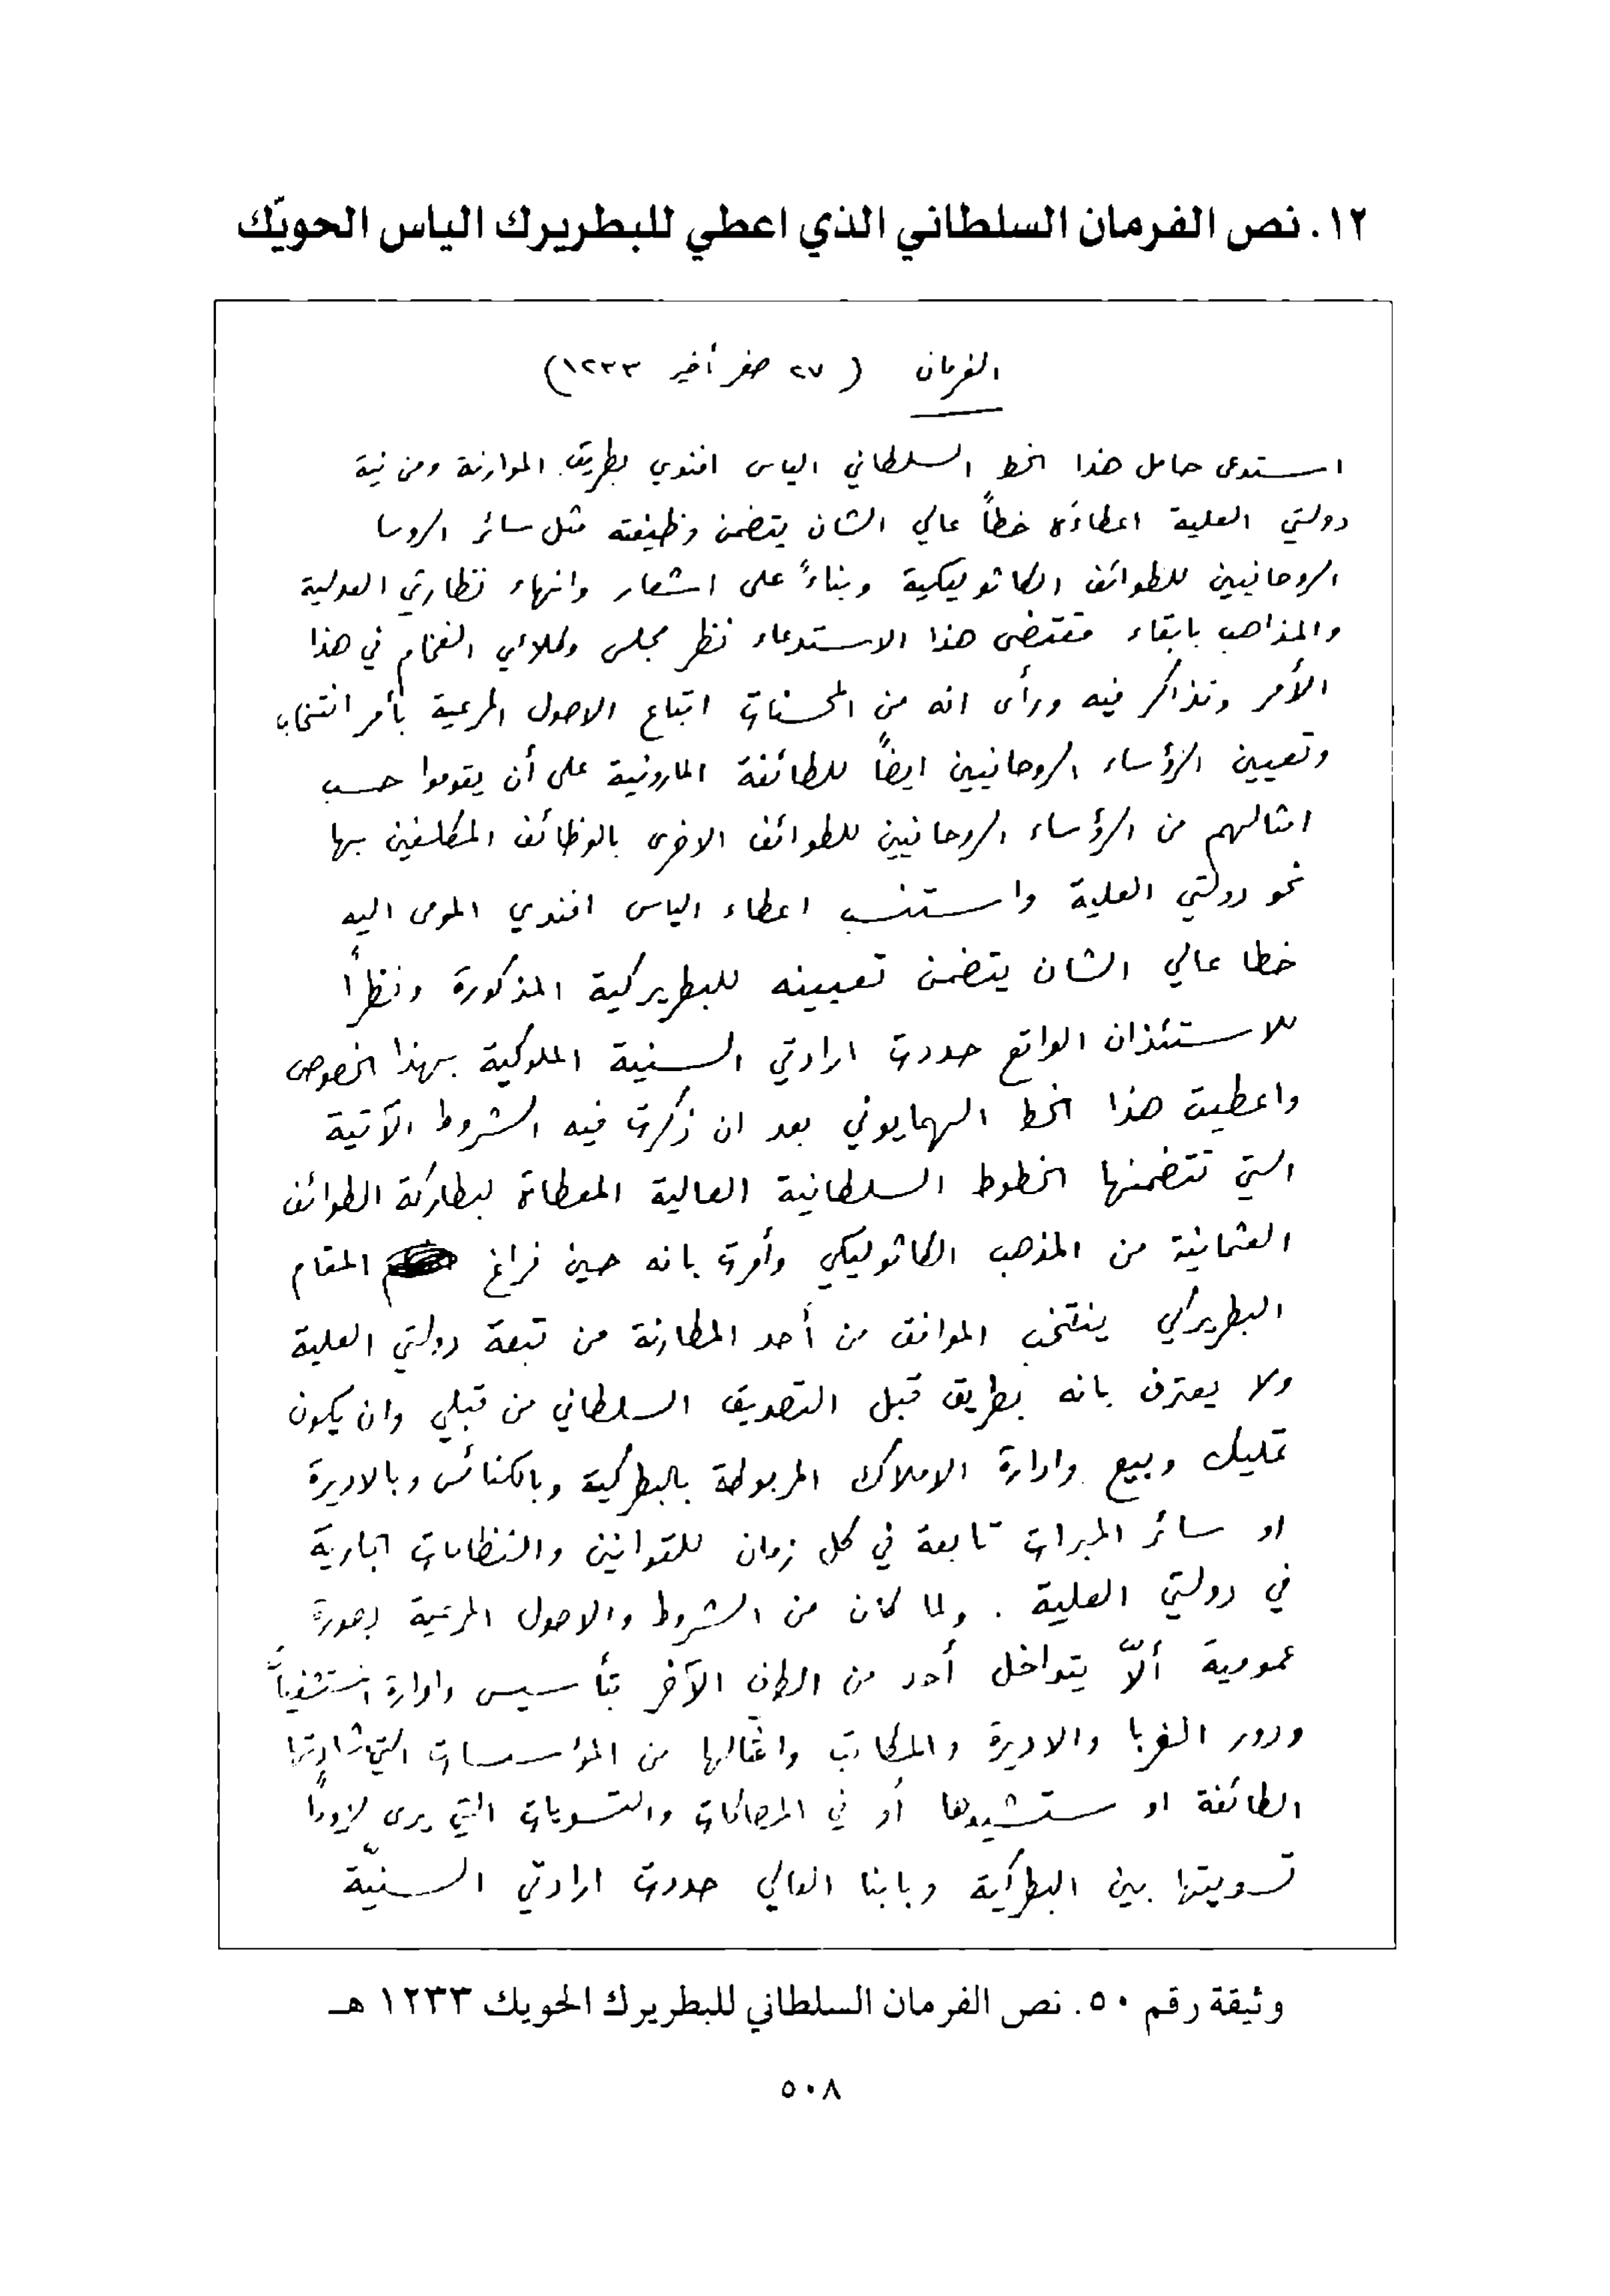 ١٢. نص الفرمان السلطاني الذي اعطي للبطريرك الياس الحويّك
الفرمان (٢٧ صفر أخير ١٢٣٣)
استدعى حامل هذا الخط السلطاني الياس افندي بطريق الموارنة ومن نية
دولتي العلية اعطاءَه خطاً عالي الشان يتضمن وظيفته مثل سائر الروسا
الروحانيين للطوائف الكاثوليكية وبناءً على اشعار وانهاء نظارتي العدلية
والمذاهب بابقاء مقتضى هذا الاستدعاء نظر مجلس وكلائي الفخام في هذا
الأمر وتذاكر فيه ورأى انه من المحسنات اتباع الاصول المرعية بأمر انتخاب
وتعيين الرؤساء الروحانيين ايضاً للطائفة المارونية على أن يقوموا حسب
امثالهم من الرؤساء الروحانيين للطوائف الاخرى بالوظائف المكلفين بها
نحو دولتي العلية واستنسب اعطاء الياس افندي المومى اليه
خطا عالي الشان يتضمن تعيينه للبطريركية المذكورة ونظراً
للاستئذان الواقع صدرت ارادتي السنية الملوكية بهذا الخصوص
واعطيت هذا الخط الهمايوني بعد ان ذكرت فيه الشروط الآتية
التي تتضمنها الخطوط السلطانية العالية المعطاة لبطاركة الطوائف
العثمانية من المذهب الكاثوليكي وأمرت بانه حين فراغ المقام
البطريركي ينتخب الموافق من أحد المطارنة من تبعة دولتي العلية
ولا يعترف بانه بطريق قبل التصديق السلطاني من قبلي وان يكون
تمليك وبيع وادارة الاملاك المربوطة بالبطركية وبالكنائس وبالاديرة
او سائر المبرات تابعة في كل زمان للقوانين والنظامات الجارية
في دولتي العلية . ولما كان من الشروط والاصول المرعية بصورة
عمومية ألاّ يتداخل أحد من الطرف الآخر بتأسيس وادارة
ودور الغربا والاديرة والمكاتب وامثالها من المؤسسات التي شادتها
الطائفة او ستشيدها أو في المصالحات والتسويات التي يرى لزوماً
تسويتها بين البطركية وبابنا العالي صدرت ارادتي السنيّة
وثيقة رقم ٥٠. نص الفرمان السلطاني للبطريرك الحويك ١٢٣٣ هـ
٥٠٨